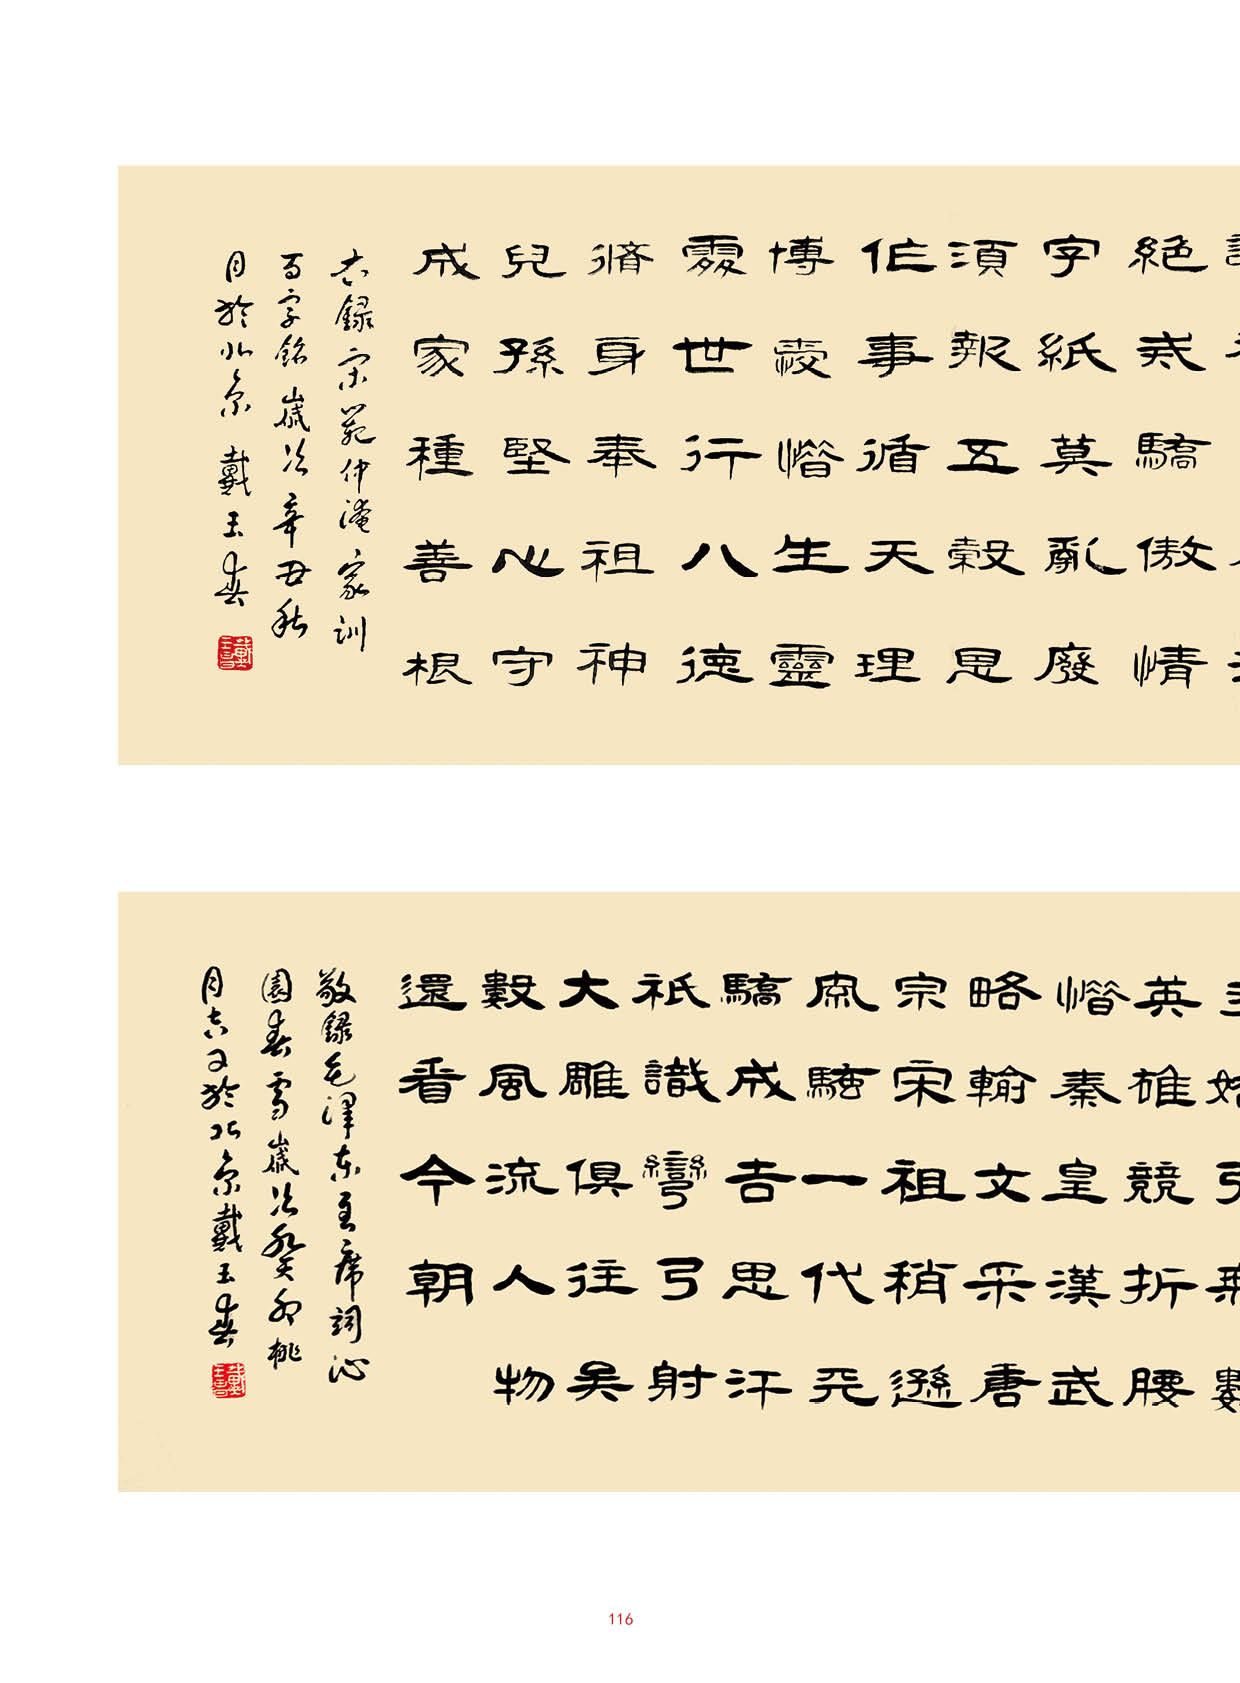 絕戒驕傲情
字紙莫亂廢
須報五穀恩
作事循天理
博愛惜生靈
處世行八德
脩身奉祖神
兒孫堅心守
成家種善根
右錄宋范仲淹家訓
百字銘歲次辛丑秋
月於北京戴玉春
英雄競折腰
惜秦皇漢武
略輸文采唐
宗宋祖稍遜
風騷一代天
驕成吉思汗
祇識彎弓射
大雕俱往矣
數風流人物
還看今朝
敬錄毛澤東主席詞沁
園春雪歲次癸卯桃
月吉日於北京戴玉春
116